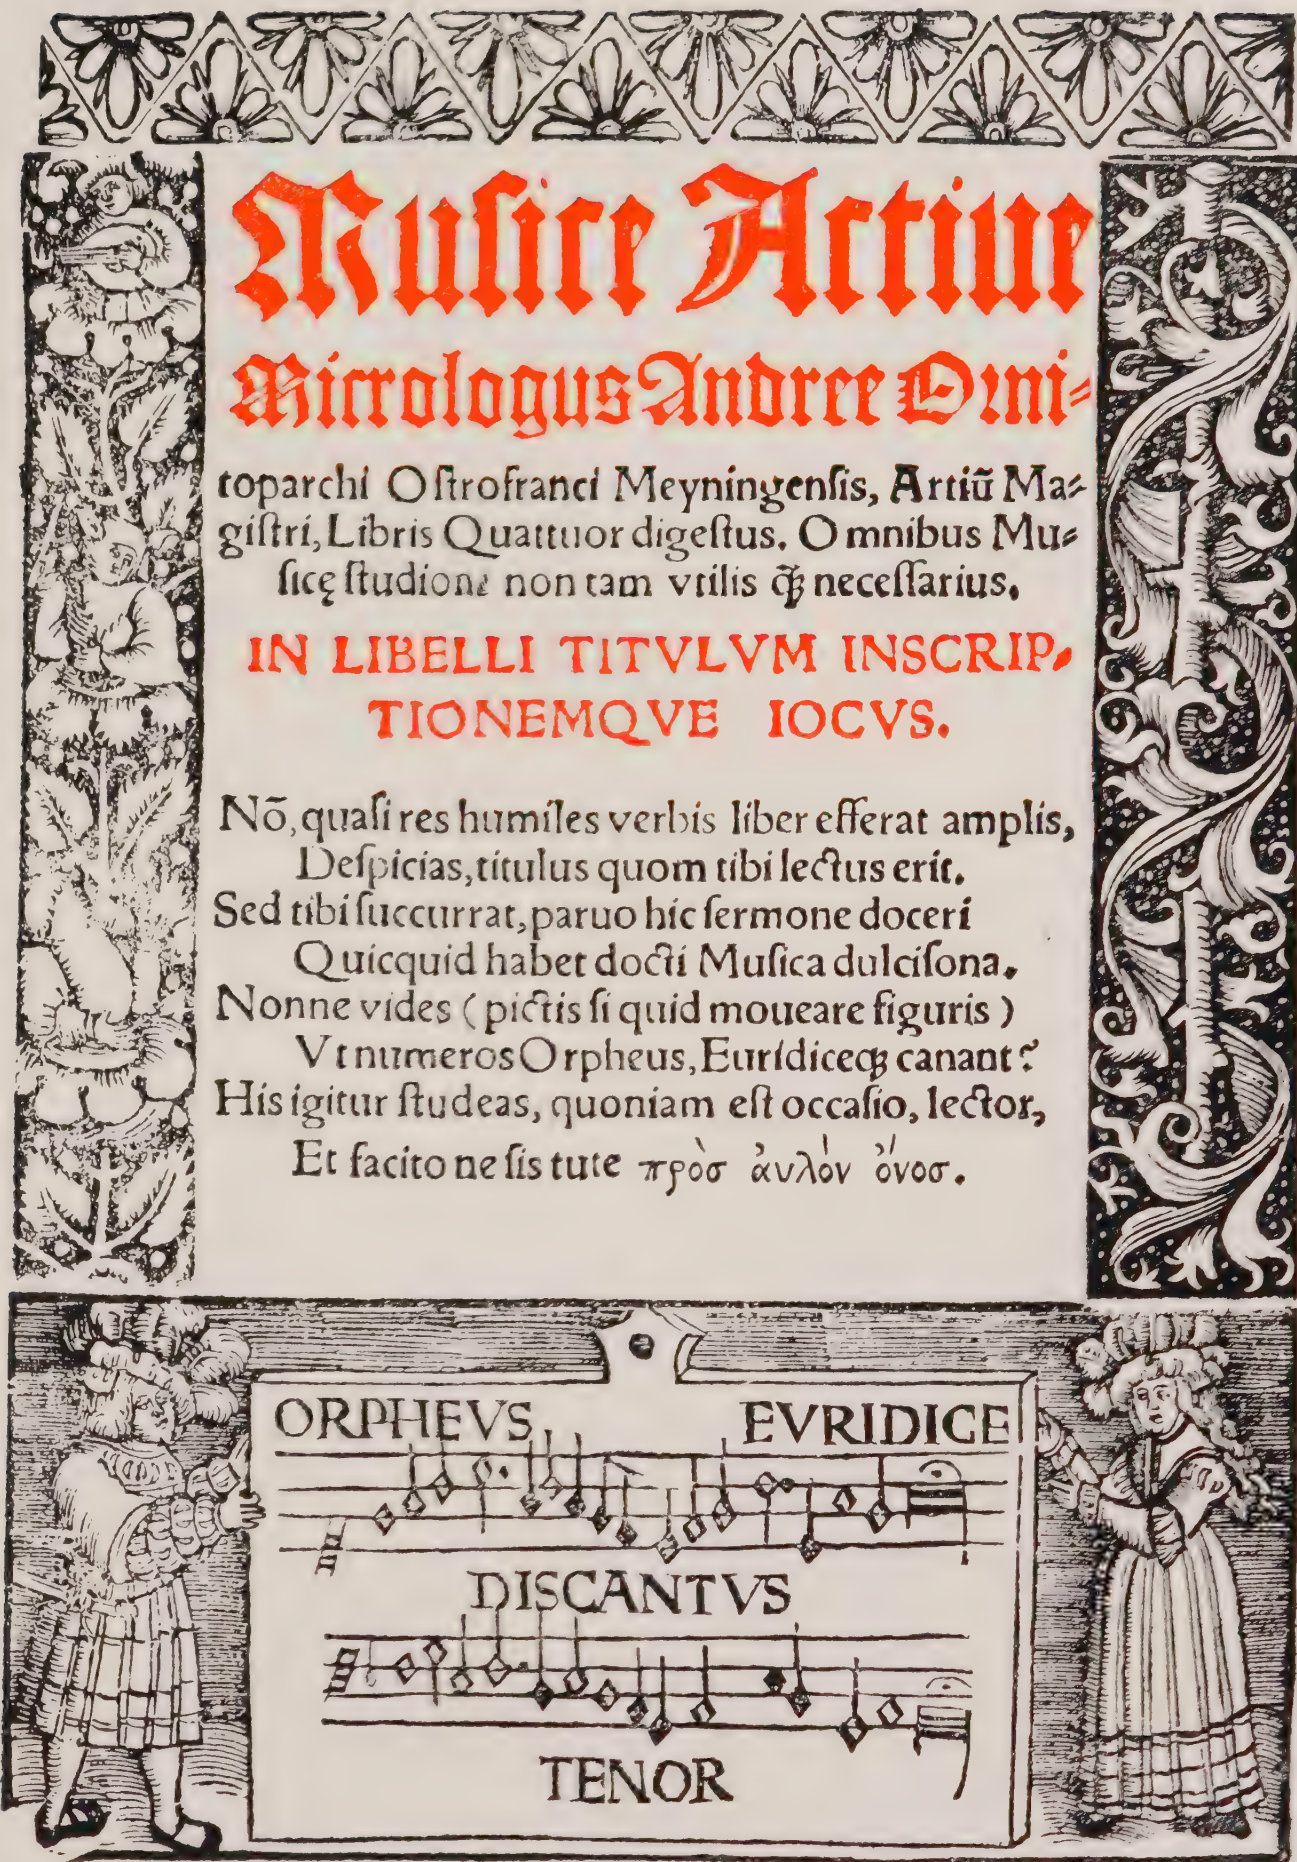 Muſice Actiue
Micrologus Andree Orni⸗
toparchi Oſtrofranci Meyningenſis, Artiũ Ma⸗
giſtri, Libris Quattuor digeſtus. Omnibus Mu⸗
ſicę ſtudioſis non tam vtilis q̃ꝫ neceſſarius.
IN LIBELLI TITVLVM INSCRIP⸗
TIONEMQVE IOCVS.
Nō, quaſi res humiles verbis liber efferat amplis,
Deſpicias, titulus quom tibi lectus erit.
Sed tibi ſuccurrat, paruo hic ſermone doceri
Quicquid habet docti Muſica dulciſona.
Nonne vides ( pictis ſi quid moueare figuris )
Vt numeros Orpheus, Euridiceqꝫ canant?
His igitur ſtudeas, quoniam eſt occaſio, lector,
Et facito ne ſis tute πρὸσ ἀυλόν ὄνοσ.
ORPHEVS EVRIDICE
DISCANTVS
TENOR